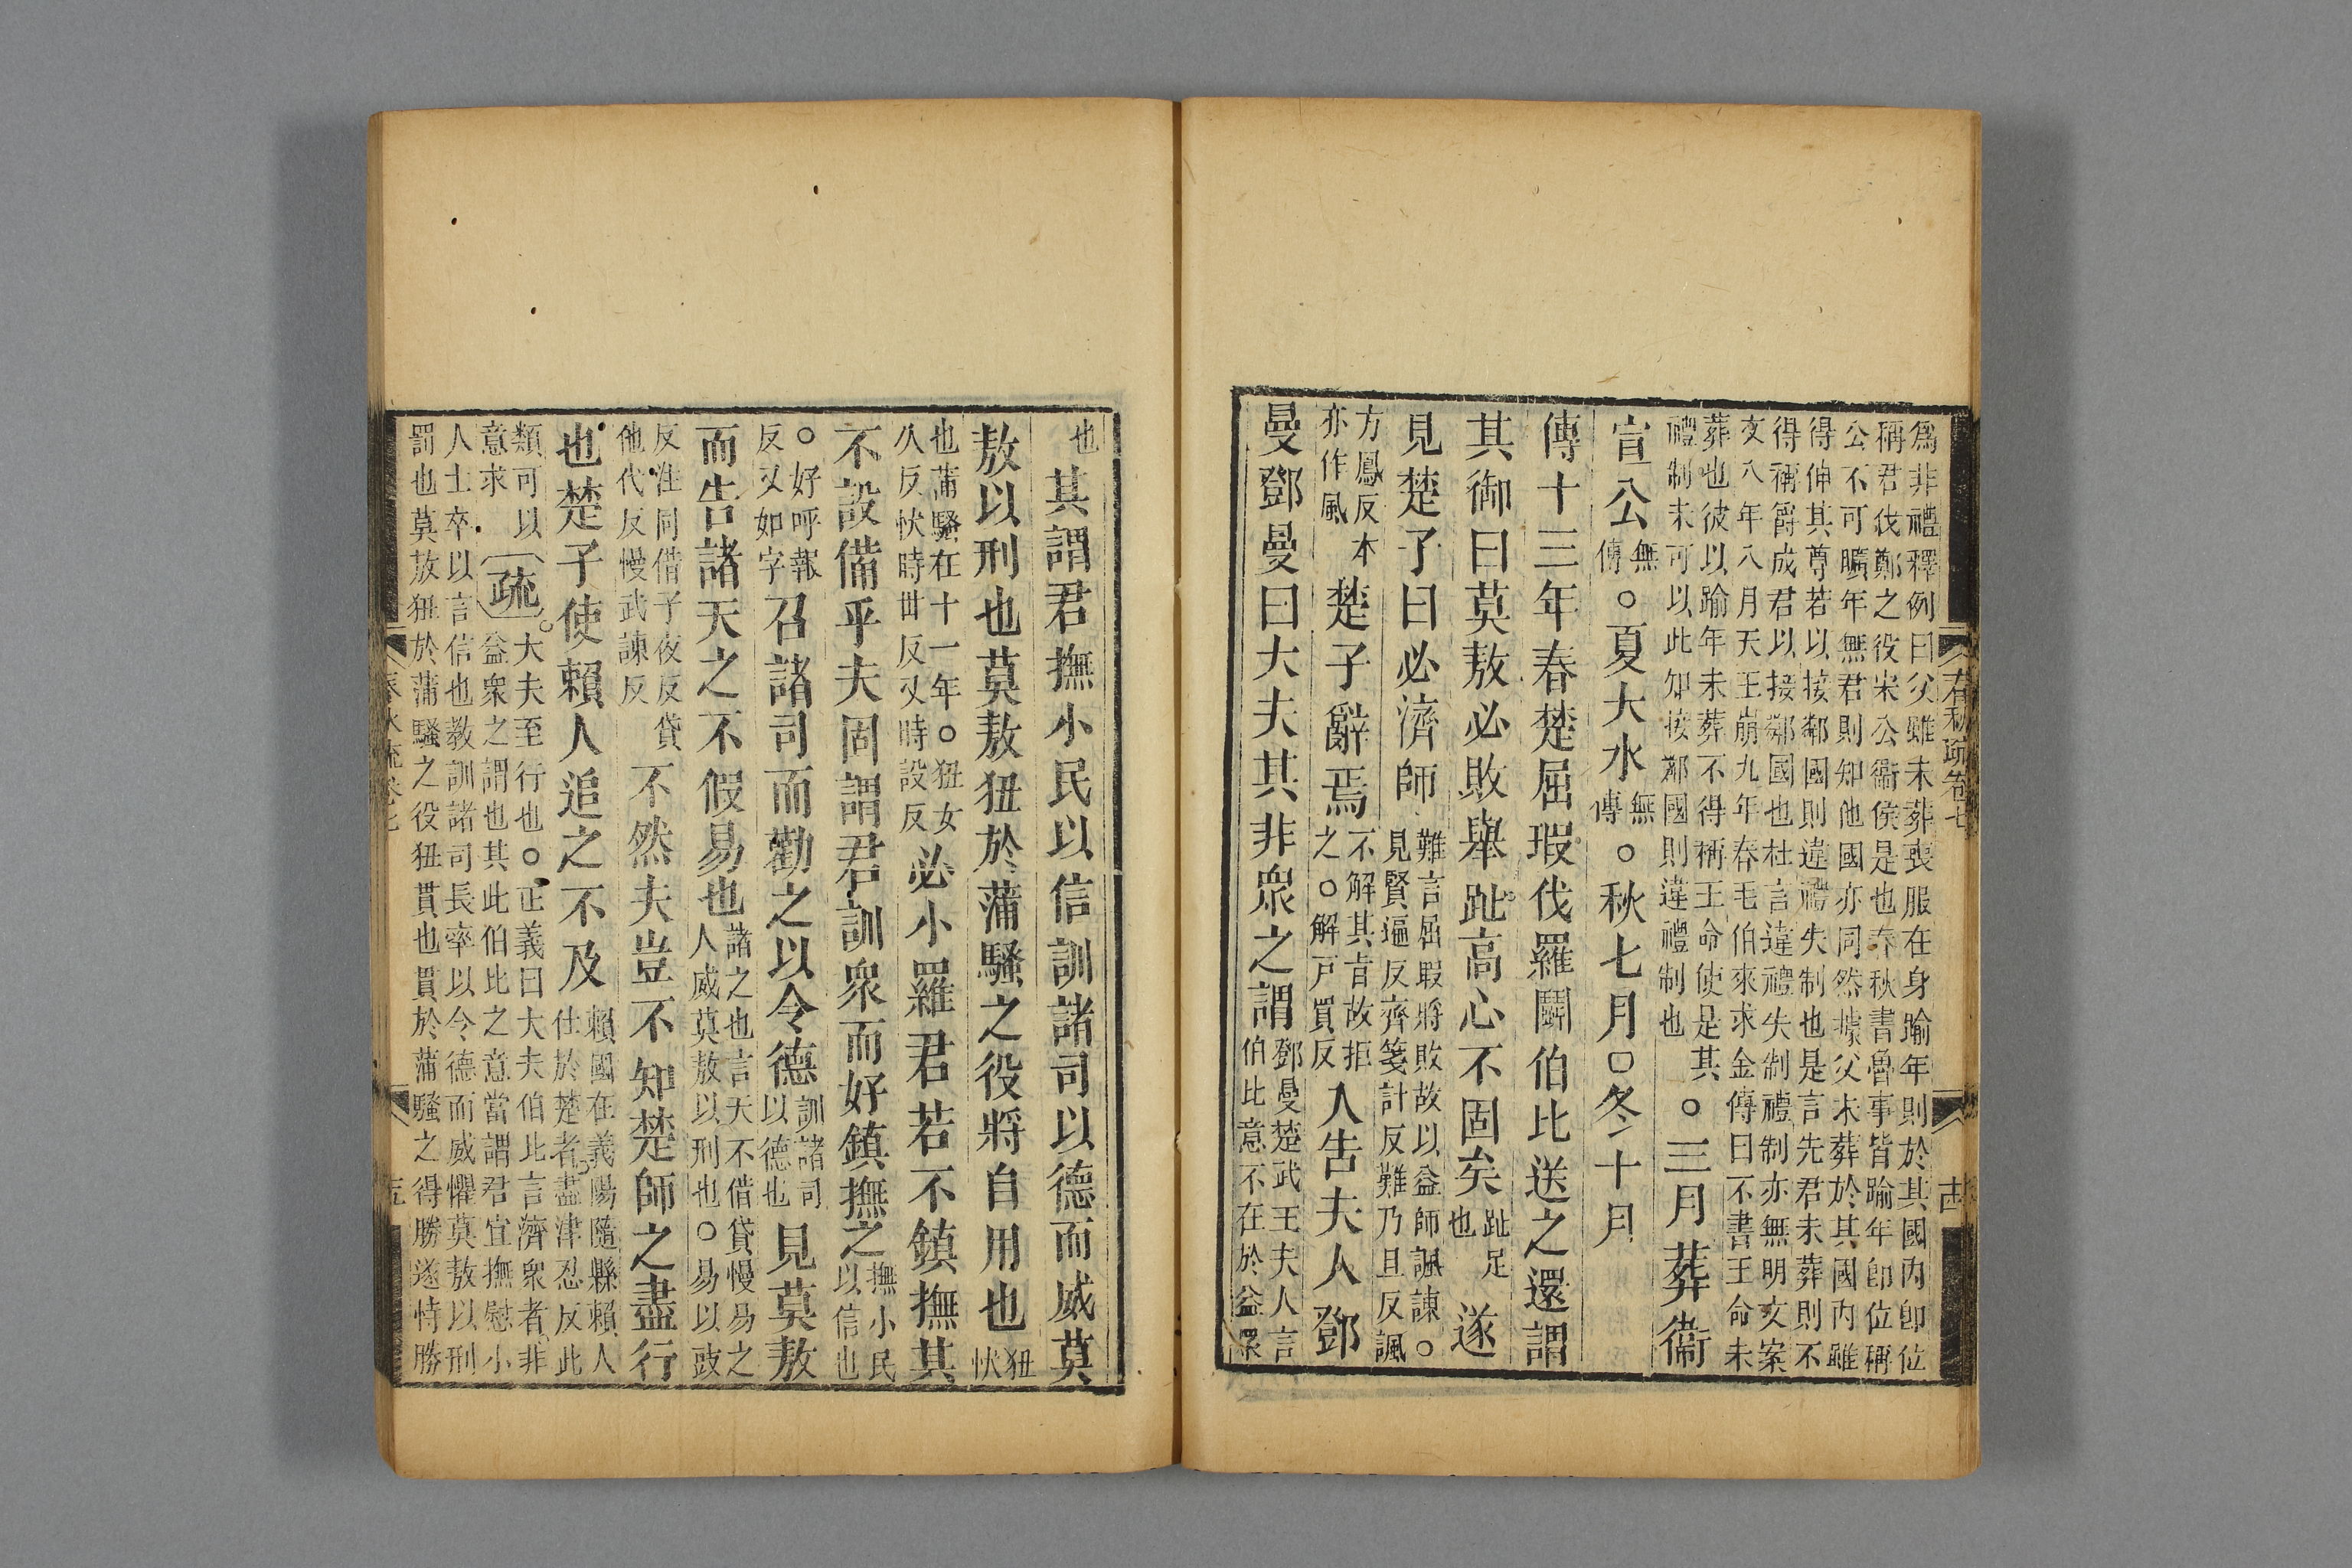 爲非禮釋例曰父雖未葬喪服在身踰年則於其國內卽位
稱君伐鄭之役宋公衞侯是也春秋書魯事皆踰年卽位稱
公不可曠年無君則知他國亦同然據父未葬於其國內雖
得伸其尊若以接鄰國則違禮失制也是言先君未葬則不
得稱爵成君以接鄰國也杜言違禮失制禮制亦無明文案
文八年八月天王崩九年春毛伯來求金傳曰不書王命未
葬也彼以踰年未葬不得稱王命使是其
禮制未可以此知接鄰國則違禮制也
。三月葬衞
宣公
無
傳
。夏大水
無
傳
。秋七月○冬十月
傳十三年春楚屈瑕伐羅鬬伯比送之還謂
其御曰莫敖必敗舉趾高心不固矣
趾足
也
遂
見楚子曰必濟師
難言屈瑕將敗故以益師諷諫。
見賢遍反齊箋計反難乃旦反諷
方鳳反本
亦作風
楚子辭焉
不解其旨故拒
之。解戸買反
入告夫人鄧
曼鄧曼曰大夫其非衆之謂
鄧曼楚武王夫人言
伯比意不在於益眾
也
其謂君撫小民以信訓諸司以德而威莫
敖以刑也莫敖狃於蒲騷之役將自用也
狃
忕
也蒲騷在十一年。狃女
久反忕時世反又時設反
必小羅君若不鎮撫其
不設備乎夫固謂君訓衆而好鎮撫之
撫小民
以信也
。好呼報
反又如字
召諸司而勸之以令德
訓諸司
以德也
見莫敖
而告諸天之不假易也
諸之也言天不借貸慢易之
人威莫敖以刑也。易以豉
反注同借子夜反貸
他代反慢武諫反
不然夫豈不知楚師之盡行
也楚子使賴人追之不及
賴國在義陽隨縣賴人
仕於楚者。盡津忍反此
類可以
意求
疏
大夫至行也。正義曰大夫伯比言濟衆者非
益衆之謂也其此伯比之意當謂君宜撫慰小
人士卒以言信也教訓諸司長率以令德而威懼莫敖以刑
罰也莫敖狃於蒲騷之役狃貫也貫於蒲騷之得勝遂恃勝
春秋疏卷七
十四
春秋疏卷七